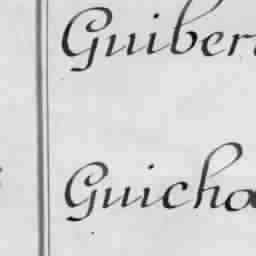 Guiber
Guicha